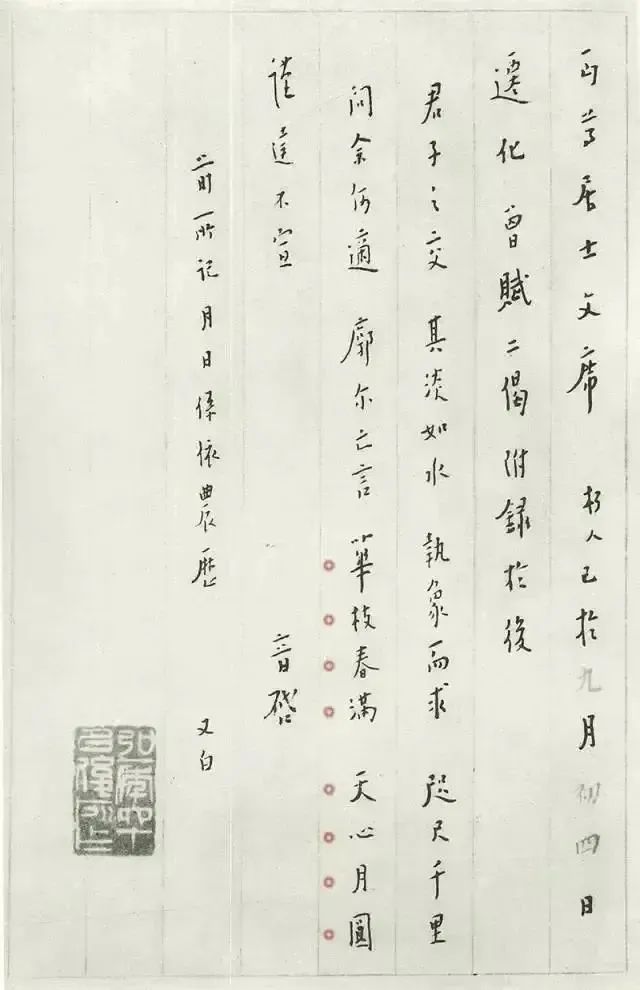 丏尊居士文席 朽人已於九月初四日
遷化曾賦二偈附録於後
君子之交 其淡如水 執象而求 咫尺千里
問余何適 廓尔亡言 華枝春滿 天心月圓
謹達不宣 音啟
前所記月日係依農歷 又白